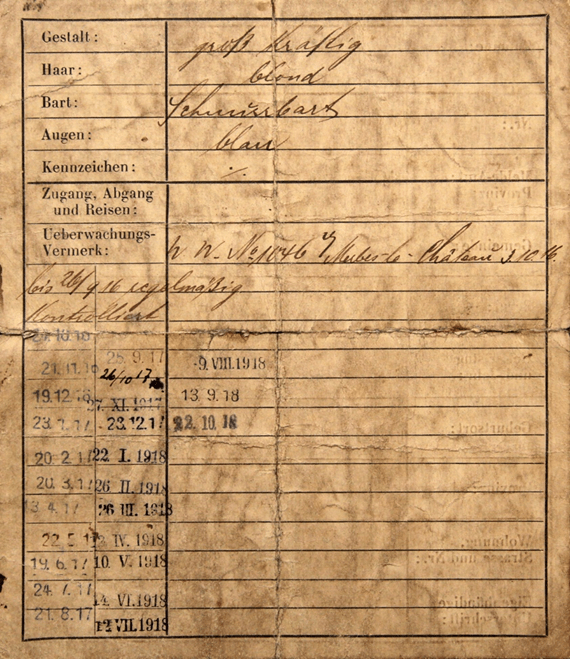 Gestalt: groß kräftig
Haar: blond
Bart: Schnurrbart
Augen: blau
Kennzeichen: ./.
Zugang, Abgang
und Reisen:
Ueberwachungs-
Vermerk: No 1046 Château 3.10.16.
bis 26/9 16 regelmäßig
kontrolliert
25.9.17 -9.VIII.1918
21.11.16 26/10 17
19.12.16 27.XI.1917 13.9.18
23.1.17 -23.12.17 22.10.18
20.2.17 22 I. 1918
20.3.17 26 II. 1918
13.4.17 26 III. 1918
22.5.17 IV. 1918
19.6.17 10. V. 1918
24.7.17
14. VI.1918
21.8.17
12 VII.1918